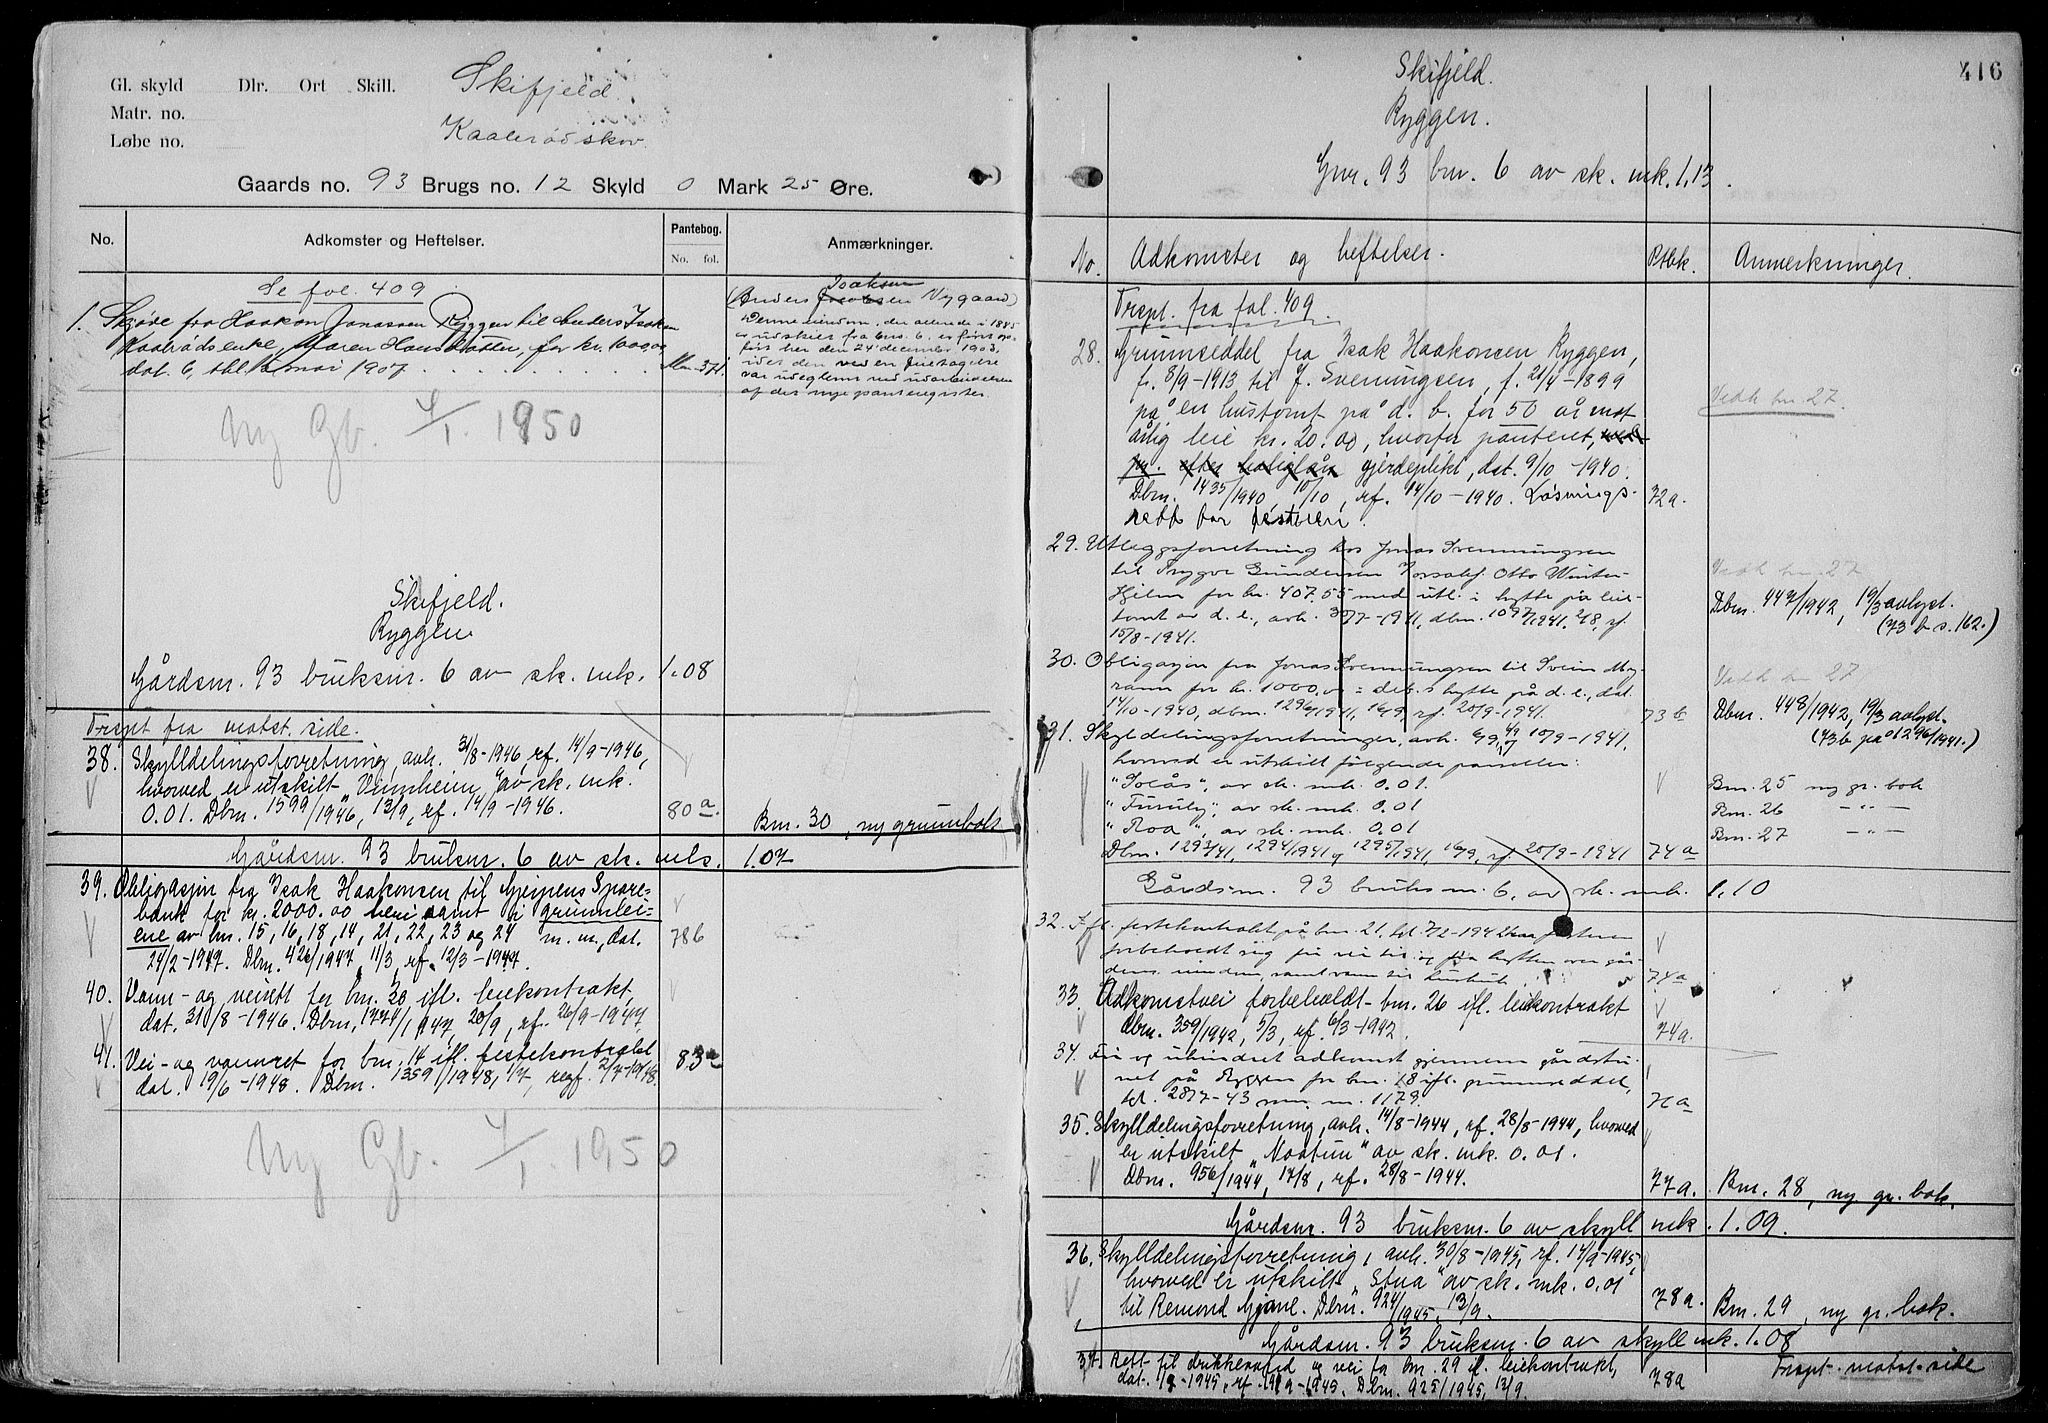 Gl. skyld Dlr. Ort Skill.
Matr. no.
Løbe no.
Skifjeld.
Kaalerødskov
Gaards no. 93 Brugs no. 12 Skyld 0 Mark 25 Øre.
No. Adkomster og Heftelser. Pantebog. No. fol. Anmærkninger.
Se fol. 409
1. Skjøde fra Haakon Jonassen Ryggen til Anders Isaksen
Kaalrødsenke, Maren Hansdatter, for kr. 1000,00
dat. 6, tbl. mai 1907
(Anders Isaksen Nygaard)
Denne eiendom, der allerede i 1885
er udskilt fra bns. 6, er først op-
ført her den 24 december 1903,
idet den ved en feiltagelse
var udeglemt ved udarbeidelsen
af det nye panteregister.
Ny Gb. 4/1. 1950
Skifjeld.
Ryggen
Gårdsnr. 93 bruksnr. 6 av sk. mk. 1.08
Trspt fra motst. side.
38. Skylldelingsforretning, avh. 31/8-1946, rf. 14/9-1946,
hvorved er utskilt "Vinnheim" av sk. mk.
0.01. Dbnr. 1599/1946, 13/9, rf. 14/9-1946. 80a Bnr. 30, ny grunnbok
Gårdsnr. 93 bruksnr. 6 av sk. mk. 1.07
39. Obligasjon fra Isak Haakonsen til Gjerpens Spare-
bank for kr. 2000.00 heri samt i grunnlei-
ene av bnr. 15, 16, 18, 14, 21, 22, 23 og 24 m. m., dat. 78b
24/2-1947. Dbnr. 426/1947, 11/3, rf. 12/3-1947.
40. Vann- og veirett for bnr. 30 ifl. leiekontrakt,
dat. 31/8-1946. Dbnr. 1774/1947, 20/9, rf. 26/9-1947.
41. Vei- og vannret for bnr. 14 ifl. festekontrakt
dat. 19/6-1948. Dbnr. 1359/1948, 1/7, regf. 2/7-1948. 83a
Ny Gb. 4/1. 1950
416
Skifjeld.
Ryggen.
Gnr. 93 bnr. 6 av sk. mk. 1.13.
No. Adkomster og heftelser. Ptbk. Anmerkninger.
Trspt. fra fol. 409.
28. Grunnseddel fra Isak Haakonsen Ryggen,
f. 8/9-1913 til J. Svenungsen, f. 21/4-1899
på en hustomt på d. b. for 50 år mot
årlig leie kr. 20.00, hvorfor panteret,
gjerdeplikt, dat. 9/10-1940.
Dbnr. 1435/1940, 10/10, rf. 14/10-1940. Løsnings- 72a.
rett for festeren.
Vedk bnr. 27.
29. Utleggsforretning hos Jonas Svennungsen
til Trygve Gundersen v/orsakf. Otto Winter-
Hjelm for kr. 407.55 med utl. i hytte på leie-
tomt av d. e., avh. 30/7-1941, dbnr. 1097/1941, 2/8, rf.
15/8-1941.
Vedk bnr. 27
Dbnr. 447/1942, 19/3 avlyst.
(73 b s. 162.)
30. Obligasjon fra Jonas Svennungsen til Svein Myr
for kr. 1000,00 = deb.s hytte på d. e., dat.
14/10-1940, dbnr. 1296/1941, 16/9, rf. 20/9-1941. 73b
Vedk bnr 27
Dbnr. 448/1942, 19/3 avlyst.
(73b på 1296/1941.)
31. Skylddelingsforretninger, avh. 10/9-1941,
hvorved er utskilt følgende parseller:
"Solås", av sk. mk. 0.01. Bnr. 25 ny gr. bok
"Furuly", av sk. mk. 0.01 Bnr. 26 - " -
"Roa", av sk. mk. 0.01 Bnr. 27 - " -
Dbnr. 1293/41, 1294/1941, 1295/1941, 16/9, rf. 20/9-1941 74a
Gårdsnr. 93 bruksnr. 6, av sk. mk. 1.10
32. Ifl. festekontrakt på bnr. 21, tgl. 7/2-1942 har festeren
forbeholdt sig fri vei til og fra hytten over går-
dens eiendom, samt vann til husbruk 74a
33. Adkomstvei forbeholdt bnr. 26 ifl. leiekontrakt
Dbnr. 359/1942, 5/3, rf. 6/3-1942. 74a.
34. Fri og uhindret adkomst gjennem gårdstu-
net på Ryggen for bnr. 18 ifl. grunnseddel,
tgl. 28/7-43 m. 1179. 76a
35. Skylldelingsforretning, avh. 14/8-1944, rf. 28/8-1944, hvorved
er utskilt "Noatun" av sk. mk. 0.01.
Dbnr. 956/1944, 17/8, rf. 28/8-1944. 77a. Bnr. 28, ny gr. bok.
Gårdsnr. 93 bruksnr. 6 av skyll mk. 1.09.
36. Skylldelingsforretning, avh. 30/8-1945, rf. 17/9-1945,
hvorved er utskilt "Stua" av sk. mk. 0.01
til Remond Gjone. Dbnr. 924/1945, 13/9. 78a. Bnr. 29, ny gr. bok.
Gårdsnr. 93 bruksnr. 6 av skyll mk. 1.08
37. Rett til drikkevand og vei for bnr. 29 ifl. leiekontrakt,
dat. 1/9-1945, rf. 17/9-1945. Dbnr. 925/1945, 13/9. 78a Trspt. motst. side